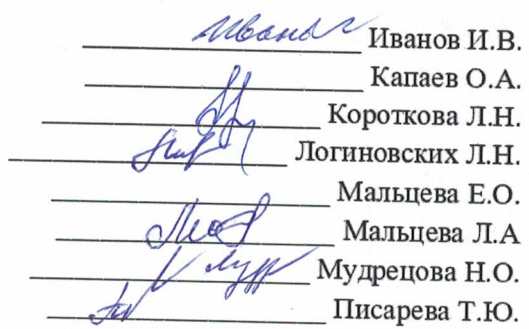 Иванов И.В.
Капаев О.А.
Короткова Л.Н.
Логиновских Л.Н.
Мальцева Е.О.
Мальцева Л.А
Мудрецова Н.О.
Писарева Т.Ю.